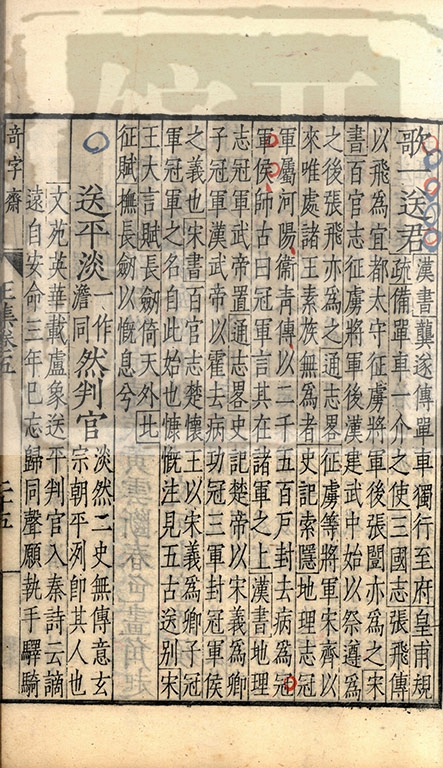 歌一送君漢書龔遂傳單車獨行至府皇甫規
疏備單車一介之使三國志張飛傳
以飛為宜都太守征虜將軍後張闓亦為之宋
書百官志征虜將軍後漢建武中始以祭遵為
之後張飛亦為之通志畧征虜等將軍宋齊以
來唯處諸王素族無為者史記索隱地理志冠
軍屬河陽衞青傳以二千五百戶封去病為冠
軍侯師古曰冠軍言其在諸軍之上漢書地理
志冠軍武帝置通志畧史記楚帝以宋義為卿
子冠軍漢武帝以霍去病功冠三軍封冠軍侯
之義也宋書百官志楚懷王以宋義為卿子冠
軍冠軍之名自此始也慷慨注見五古送別宋
王大言賦長劒倚天外比
征賦撫長劒以慨息兮
送平淡一作澹同然判官淡然二史無傳意玄
宗朝平洌即其人也
文苑英華載盧象送平判官入秦詩云謫
遠自安命三年已忘歸同聲願執手驛騎
奇字齋 王集卷五 二十五